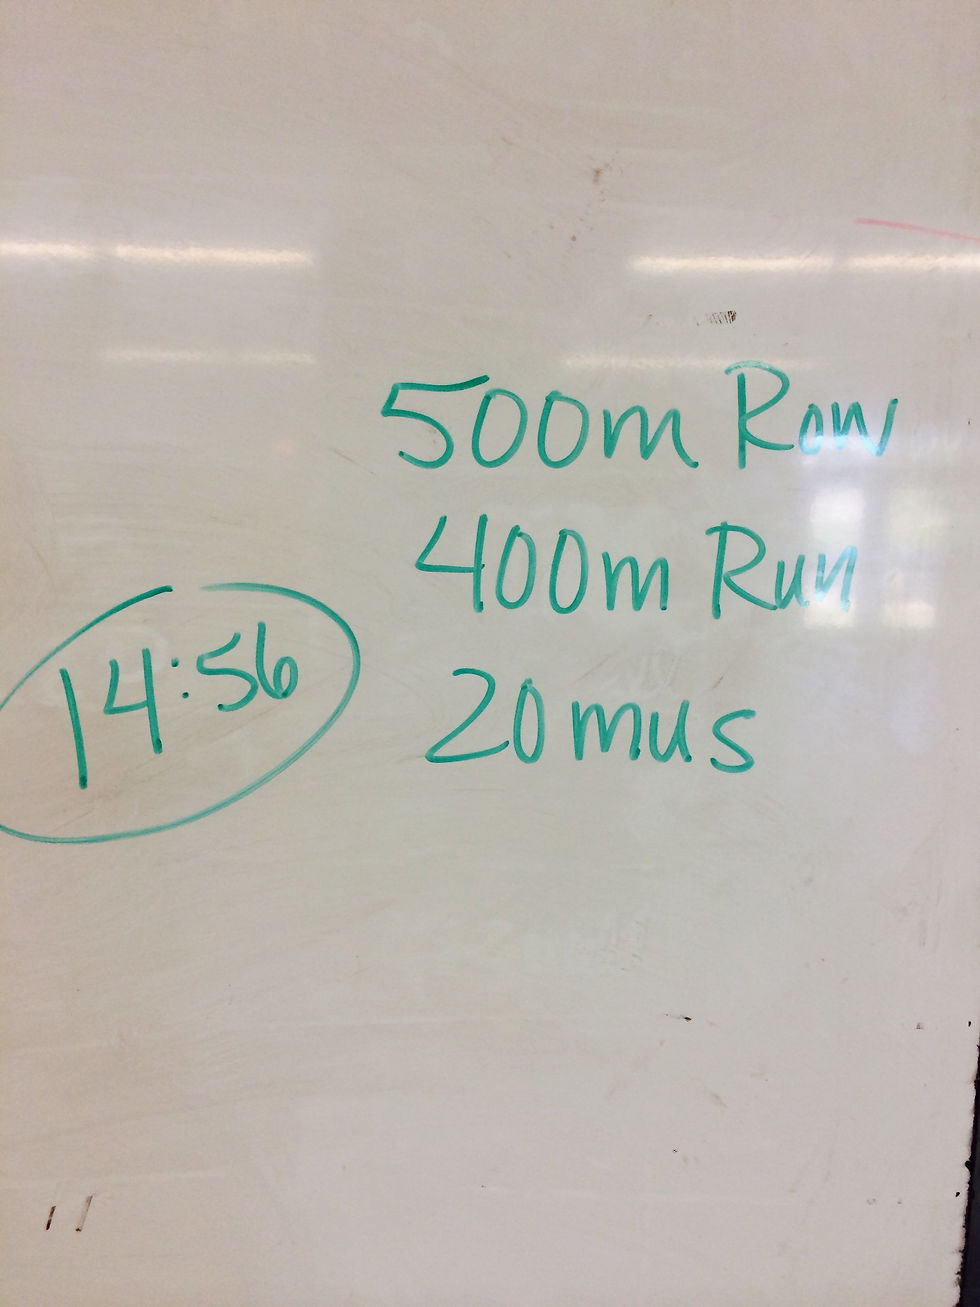 500m Row
400m Run
14:56
20 mus